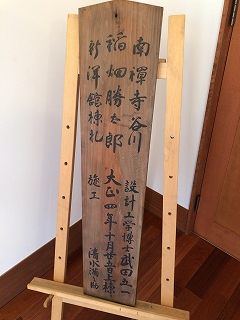 南禪寺谷川
稲畑勝太郎
新洋館棟札
設計工学博士武田五一
大正四年十月廿五日上棟
施工 清水満助